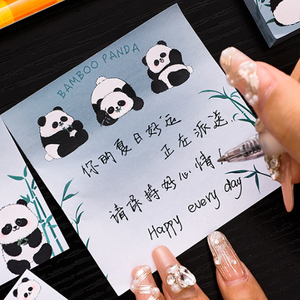 BAMBOO PANDA
你的夏日好运
正在派送
请保持好心情!
Happy every day